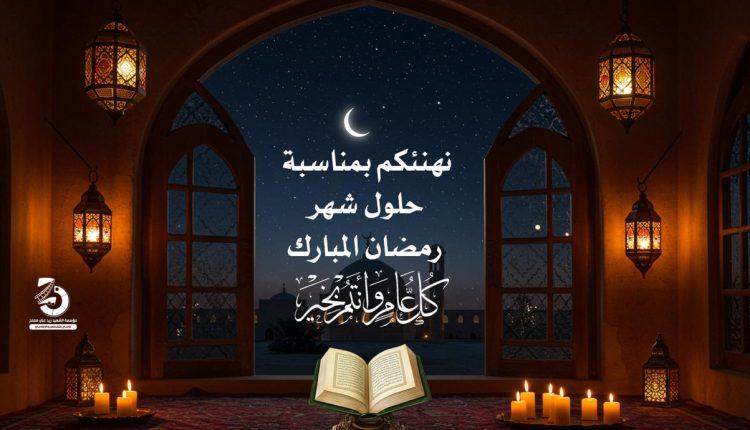 نهنئكم بمناسبة
حلول شهر
رمضان المبارك
كُلُّ عَامٍ وَأَنْتُمْ بِخَيْرٍ
مؤسسة الشهيد زيد علي مصلح